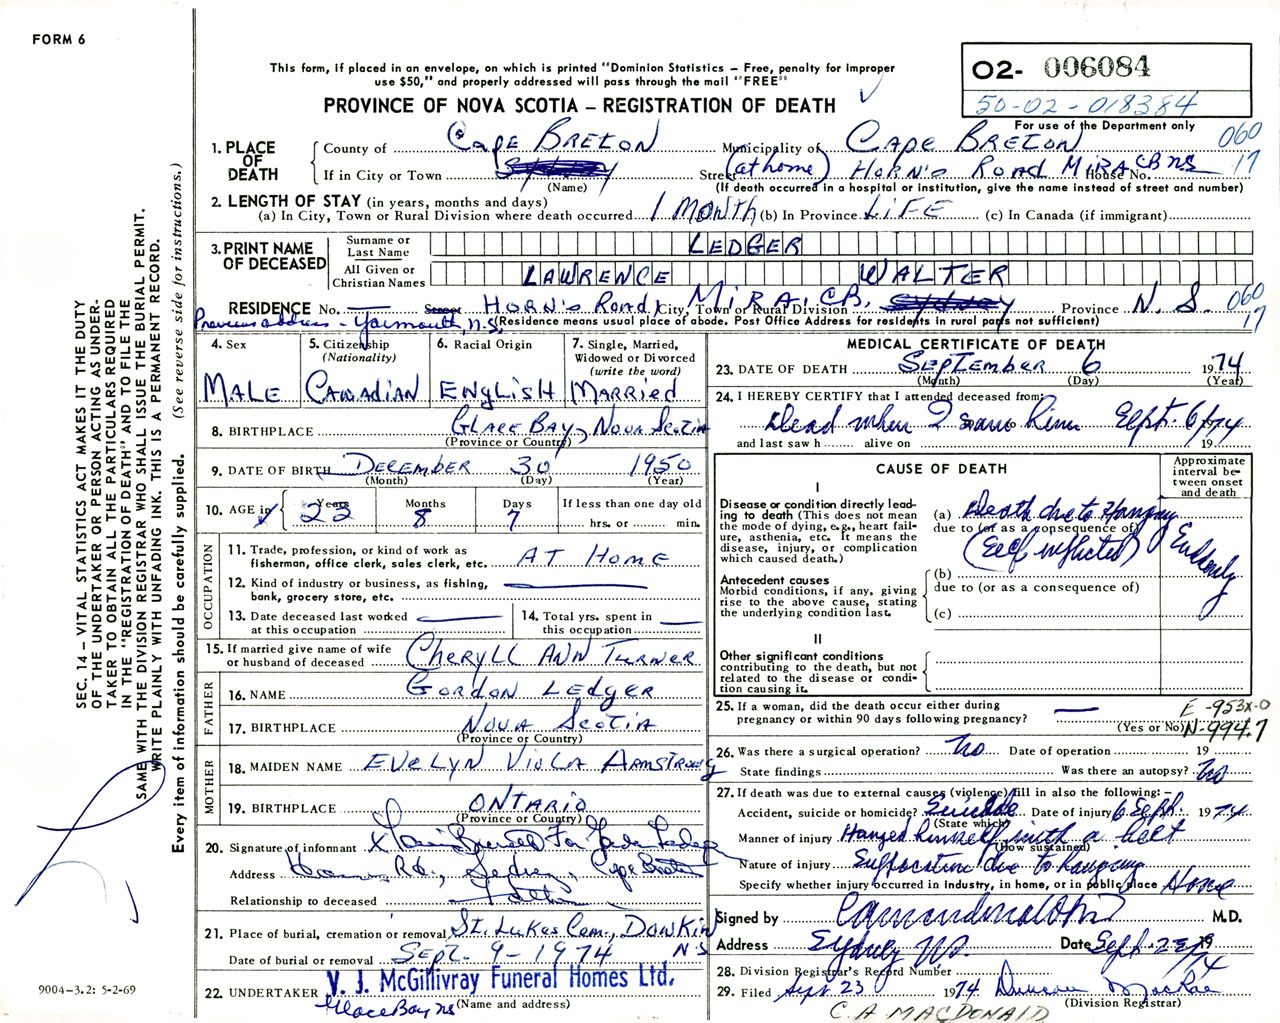 FORM 6
This form, if placed in an envelope, on which is printed "Dominion Statistics — Free, penalty for improper
use $50," and properly addressed will pass through the mail "FREE"
PROVINCE OF NOVA SCOTIA — REGISTRATION OF DEATH
O2- 006084
50-02-018384
For use of the Department only
060
17
1. PLACE OF DEATH
County of Cape Breton Municipality of Cape Breton
If in City or Town Street (at home) Horn's Road Mira CB NS House No.
(Name) (If death occurred in a hospital or institution, give the name instead of street and number)
2. LENGTH OF STAY (in years, months and days)
(a) In City, Town or Rural Division where death occurred 1 Month (b) In Province Life (c) In Canada (if immigrant)
3. PRINT NAME OF DECEASED
Surname or Last Name LEDGER
All Given or Christian Names LAWRENCE WALTER
RESIDENCE No. — Street Horn's Road, City, Town or Rural Division Mira, CB. Province N.S. 060
17
Previous address - Yarmouth, N.S. (Residence means usual place of abode. Post Office Address for residents in rural parts not sufficient)
4. Sex
MALE
5. Citizenship (Nationality)
Canadian
6. Racial Origin
English
7. Single, Married, Widowed or Divorced (write the word)
Married
8. BIRTHPLACE Glace Bay, Nova Scotia
(Province or Country)
9. DATE OF BIRTH December 30 1950
(Month) (Day) (Year)
10. AGE in Years 22 Months 8 Days 7 If less than one day old
hrs. or min.
OCCUPATION
11. Trade, profession, or kind of work as
fisherman, office clerk, sales clerk, etc. AT HOME
12. Kind of industry or business, as fishing,
bank, grocery store, etc. —
13. Date deceased last worked
at this occupation —
14. Total yrs. spent in
this occupation —
15. If married give name of wife
or husband of deceased Cheryll Ann Turner
FATHER
16. NAME Gordon Ledger
17. BIRTHPLACE Nova Scotia
(Province or Country)
MOTHER
18. MAIDEN NAME Evelyn Viola Armstrong
19. BIRTHPLACE Ontario
(Province or Country)
20. Signature of informant X
Address Rd., Sydney, Cape Breton
Relationship to deceased Father
21. Place of burial, cremation or removal St. Lukes Cem., Donkin
N S
Date of burial or removal Sept. 9 - 1974
22. UNDERTAKER V. J. McGillivray Funeral Homes Ltd.
Glace Bay NS (Name and address)
MEDICAL CERTIFICATE OF DEATH
23. DATE OF DEATH September 6 1974
(Month) (Day) (Year)
24. I HEREBY CERTIFY that I attended deceased from
Dead when I saw him Sept. 6/74
and last saw h alive on 19
CAUSE OF DEATH
Approximate interval between onset and death
I
Disease or condition directly leading to death (This does not mean the mode of dying, e.g., heart failure, asthenia, etc. It means the disease, injury, or complication which caused death.)
(a) Death due to Hanging
due to (or as a consequence of)
(Self inflicted)
Suddenly
Antecedent causes
Morbid conditions, if any, giving rise to the above cause, stating the underlying condition last.
(b)
due to (or as a consequence of)
(c)
II
Other significant conditions
contributing to the death, but not related to the disease or condition causing it.
25. If a woman, did the death occur either during
pregnancy or within 90 days following pregnancy? — (Yes or No)
E-953X-0
N-994.7
26. Was there a surgical operation? No Date of operation 19
State findings Was there an autopsy? No
27. If death was due to external causes (violence) fill in also the following:—
Accident, suicide or homicide? Suicide Date of injury 6 Sept. 1974
(State which)
Manner of injury Hanged himself with a belt
(How sustained)
Nature of injury Suffocation due to hanging
Specify whether injury occurred in industry, in home, or in public place Home
Signed by M.D.
Address Sydney NS. Date Sept. 23/74 19
28. Division Registrar's Record Number
29. Filed Sept 23 1974 Duncan MacRae
(Division Registrar)
C.A MACDONALD
SEC. 14 — VITAL STATISTICS ACT MAKES IT THE DUTY
OF THE UNDERTAKER OR PERSON ACTING AS UNDER-
TAKER TO OBTAIN ALL THE PARTICULARS REQUIRED
IN THE "REGISTRATION OF DEATH" AND TO FILE THE
SAME WITH THE DIVISION REGISTRAR WHO SHALL ISSUE THE BURIAL PERMIT.
WRITE PLAINLY WITH UNFADING INK. THIS IS A PERMANENT RECORD.
Every item of information should be carefully supplied. (See reverse side for instructions.)
9004-3.2: 5-2-69